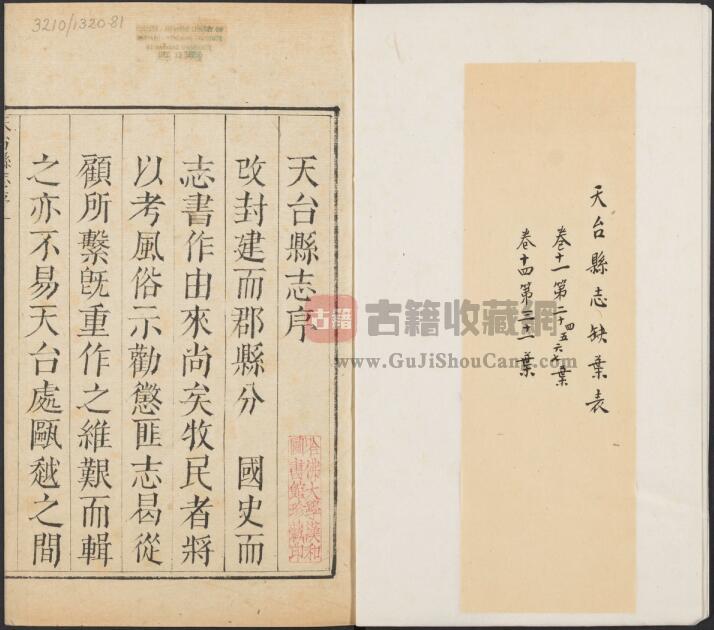 天台縣志缺葉表
卷十一第二十四五六七葉
卷十四第三十葉
3210/1320.81
天台縣志序
改封建而郡縣分 國史而
志書作由來尚矣牧民者將
以考風俗示勸懲匪志曷從
顧所繫旣重作之維艱而輯
之亦不易天台處甌越之間
哈佛大學漢和
圖書館珍藏印
古籍 古籍收藏網
www.GuJiShouCang.com